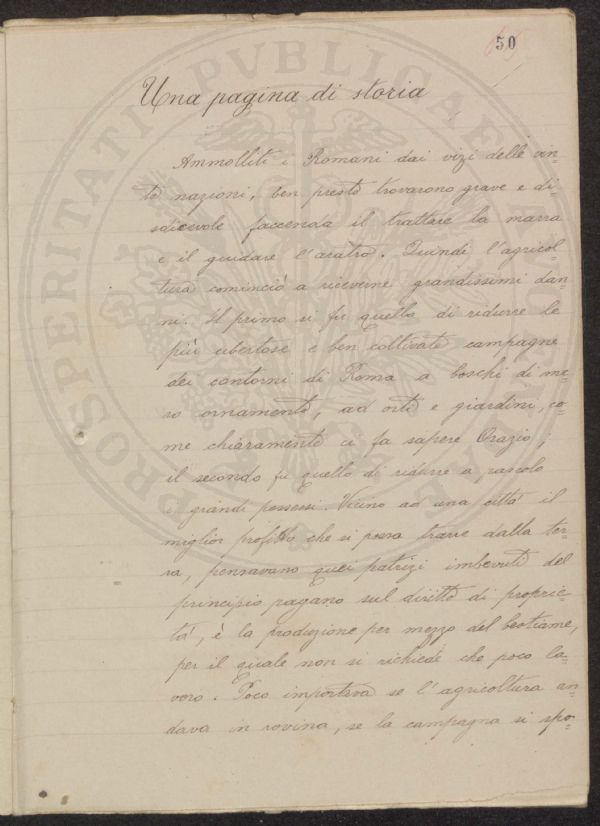 50
Una pagina di storia
Ammolliti i Romani dai vizi delle vin=
te nazioni, ben presto trovarono grave e di=
sdicevole faccenda il trattare la marra
e il guidare l'aratro. Quindi l'agricol=
tura cominciò a riceverne grandissimi dan=
ni. Il primo si fu quello di ridurre le
più ubertose e ben coltivate campagne
dei contorni di Roma a boschi di me=
ro ornamento, ad orti e giardini, co=
me chiaramente ci fa sapere Orazio;
il secondo fu quello di ridurre a pascolo
i grandi possessi. Vicino ad una città il
miglior profitto che si possa trarre dalla ter=
ra, pensavano quei patrizi imbevuti del
principio pagano sul diritto di proprie=
tà, è la produzione per mezzo del bestiame,
per il quale non si richiede che poco la=
voro. Poco importava se l'agricoltura an=
dava in rovina, se la campagna si spo=
PROSPERITATI PVBLICAE